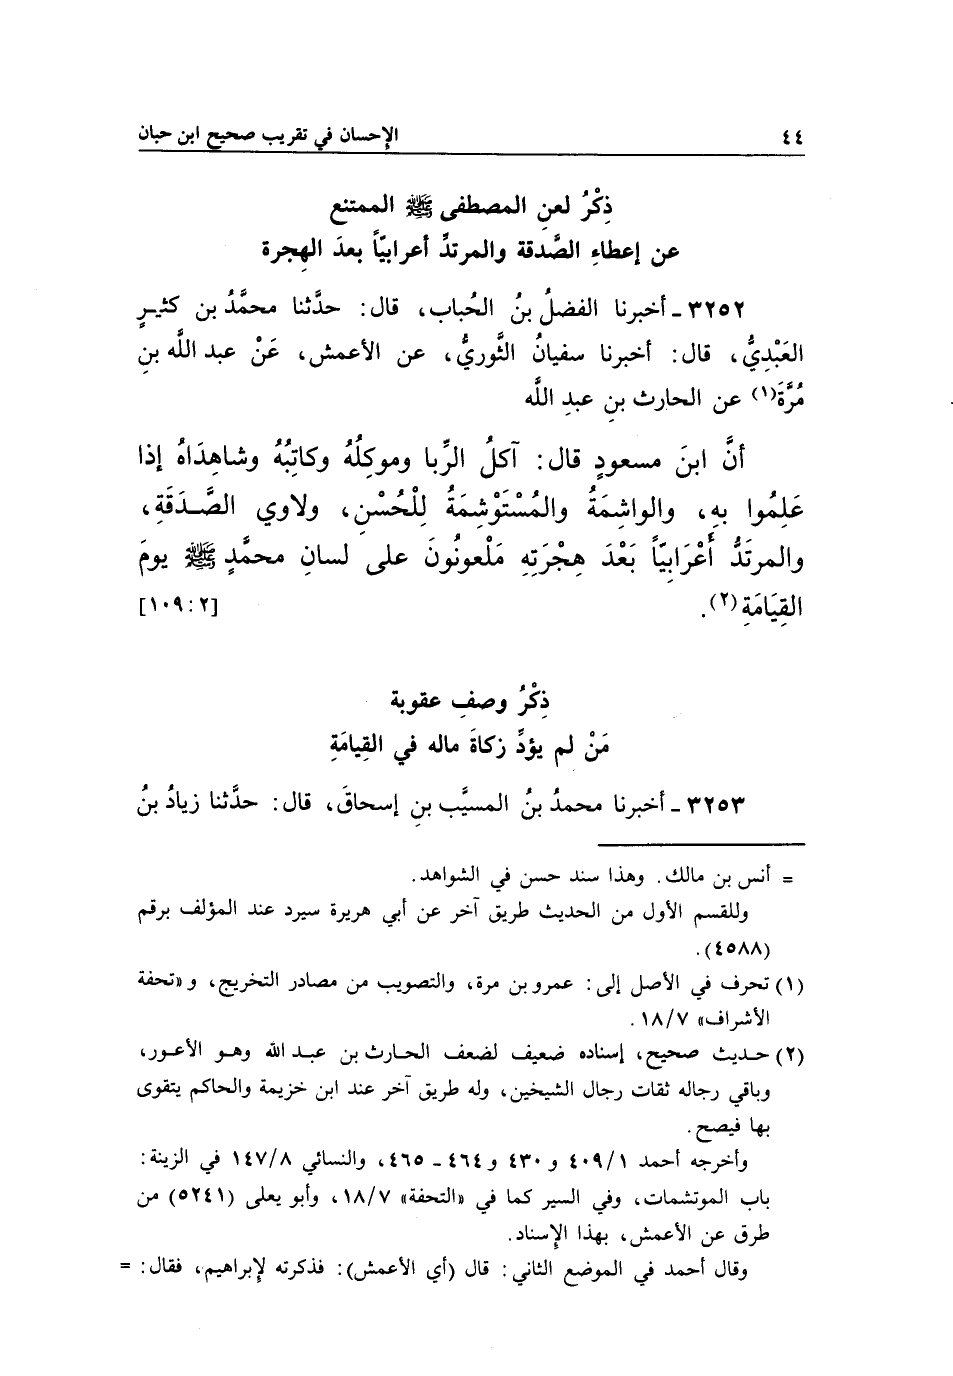 ٤٤ الإحسان في تقريب صحيح ابن حبان
ذِكْرُ لعنِ المصطفى ﷺ الممتنع
عن إعطاءِ الصَّدقة والمرتدِّ أعرابيّاً بعدَ الهِجرة
٣٢٥٢ - أخبرنا الفضلُ بنُ الحُباب، قال: حدَّثنا محمَّدُ بن كثيرٍ
العَبْدِيُّ، قال: أخبرنا سفيانُ الثَّوريُّ، عن الأعمش، عَنْ عبد الله بنِ
مُرَّةَ(١) عن الحارث بنِ عبدِ اللَّه
أنَّ ابنَ مسعودٍ قال: آكلُ الرِّبا وموكِلُهُ وكاتِبُهُ وشاهِدَاهُ إذا
عَلِمُوا بهِ، والواشِمَةُ والمُسْتَوْشِمَةُ لِلْحُسْنِ، ولاوي الصَّدَقَةِ،
والمرتَدُّ أَعْرَابِيّاً بَعْدَ هِجْرَتِهِ مَلْعونُونَ على لسانِ محمَّدٍ ﷺ يومَ
القِيَامَةِ(٢). [٢: ١٠٩]
ذِكْرُ وصفِ عقوبة
مَنْ لم يؤدِّ زكاةَ ماله في القِيامَةِ
٣٢٥٣ - أخبرنا محمدُ بنُ المسيَّب بنِ إسحاقَ، قال: حدَّثنا زيادُ بنُ
= أنس بن مالك. وهذا سند حسن في الشواهد.
وللقسم الأول من الحديث طريق آخر عن أبي هريرة سيرد عند المؤلف برقم
(٤٥٨٨).
(١) تحرف في الأصل إلى: عمرو بن مرة، والتصويب من مصادر التخريج، و «تحفة
الأشراف» ١٨/٧.
(٢) حديث صحيح، إسناده ضعيف لضعف الحارث بن عبد الله وهو الأعور،
وباقي رجاله ثقات رجال الشيخين، وله طريق آخر عند ابن خزيمة والحاكم يتقوى
بها فيصح.
وأخرجه أحمد ٤٠٩/١ و ٤٣٠ و ٤٦٤ - ٤٦٥، والنسائي ١٤٧/٨ في الزينة:
باب الموتشمات، وفي السير كما في «التحفة» ١٨/٧، وأبو يعلى (٥٢٤١) من
طرق عن الأعمش، بهذا الإسناد.
وقال أحمد في الموضع الثاني: قال (أي الأعمش): فذكرته لإبراهيم، فقال: =